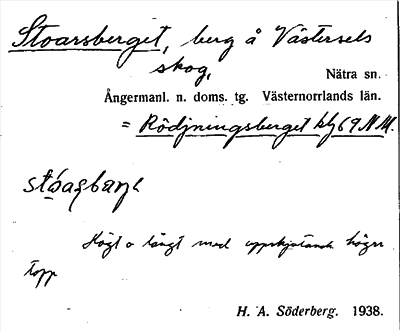 Stoarsberget, berg å Västersels
skog,
Nätra sn.
Ångermanl. n. doms. tg. Västernorrlands län.
= Rödjningsberget blj 69 N.M.
Högt o långt med uppskjutande högre
topp
H. A. Söderberg. 1938.